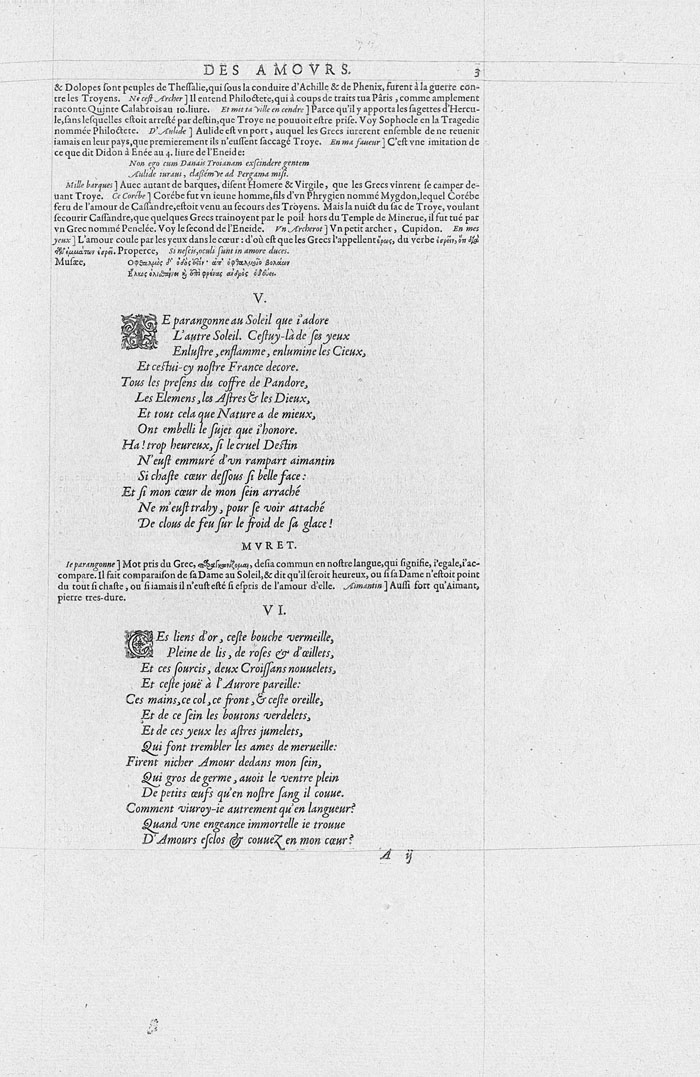 DES AMOVRS. 3
& Dolopes sont peuples de Thessalie, qui sous la conduite d'Achille & de Phenix, furent à la guerre con-
tre les Troyens. Ne cest Archer] Il entend Philoctete, qui à coups de traits tua Pâris, comme amplement
raconte Quinte Calabrois au 10. liure. Et met ta ville en cendre] Parce qu'il y apporta les sagettes d'Hercu-
le, sans lesquelles estoit arresté par destin, que Troye ne pouuoit estre prise. Voy Sophocle en la Tragedie
nommée Philoctete. D'Aulide] Aulide est vn port, auquel les Grecs iurerent ensemble de ne reuenir
iamais en leur pays, que premierement ils n'eussent saccagé Troye. En ma faueur] C'est vne imitation de
ce que dit Didon à Enée au 4. liure de l'Eneide:
Non ego cum Danais Troianam exscindere gentem
Aulide iuraui, classém've ad Pergama misi.
Mille barques] Auec autant de barques, disent Homere & Virgile, que les Grecs vinrent se camper de-
uant Troye. Ce Corébe] Corébe fut vn ieune homme, fils d'vn Phrygien nommé Mygdon, lequel Corébe
feru de l'amour de Cassandre, estoit venu au secours des Troyens. Mais la nuict du sac de Troye, voulant
secourir Cassandre, que quelques Grecs trainoyent par le poil hors du Temple de Minerue, il fut tué par
vn Grec nommé Penelée. Voy le second de l'Eneide. Vn Archerot] Vn petit archer, Cupidon. En mes
yeux] L'amour coule par les yeux dans le cœur: d'où est que les Grecs l'appellent ἔρως, du verbe
Properce, Si nescis, oculi sunt in amore duces.
Musæe,
V.
IE parangonne au Soleil que i'adore
L'autre Soleil. Cestuy-là de ses yeux
Enlustre, enflamme, enlumine les Cieux,
Et cestui-cy nostre France decore.
Tous les presens du coffre de Pandore,
Les Elemens, les Astres & les Dieux,
Et tout cela que Nature a de mieux,
Ont embelli le sujet que i'honore.
Ha! trop heureux, si le cruel Destin
N'eust emmuré d'vn rampart aimantin
Si chaste cœur dessous si belle face:
Et si mon cœur de mon sein arraché
Ne m'eust trahy, pour se voir attaché
De clous de feu sur le froid de sa glace!
MVRET.
Ie parangonne] Mot pris du Grec, desia commun en nostre langue, qui signifie, i'egale, i'ac-
compare. Il fait comparaison de sa Dame au Soleil, & dit qu'il seroit heureux, ou si sa Dame n'estoit point
du tout si chaste, ou si iamais il n'eust esté si espris de l'amour d'elle. Aimantin] Aussi fort qu'Aimant,
pierre tres-dure.
VI.
CEs liens d'or, ceste bouche vermeille,
Pleine de lis, de roses & d'œillets,
Et ces sourcis, deux Croissans nouuelets,
Et ceste jouë à l'Aurore pareille:
Ces mains, ce col, ce front, & ceste oreille,
Et de ce sein les boutons verdelets,
Et de ces yeux les astres jumelets,
Qui font trembler les ames de merueille:
Firent nicher Amour dedans mon sein,
Qui gros de germe, auoit le ventre plein
De petits œufs qu'en nostre sang il couue.
Comment viuroy-ie autrement qu'en langueur?
Quand vne engeance immortelle ie trouue
D'Amours esclos & couuez en mon cœur?
A ij